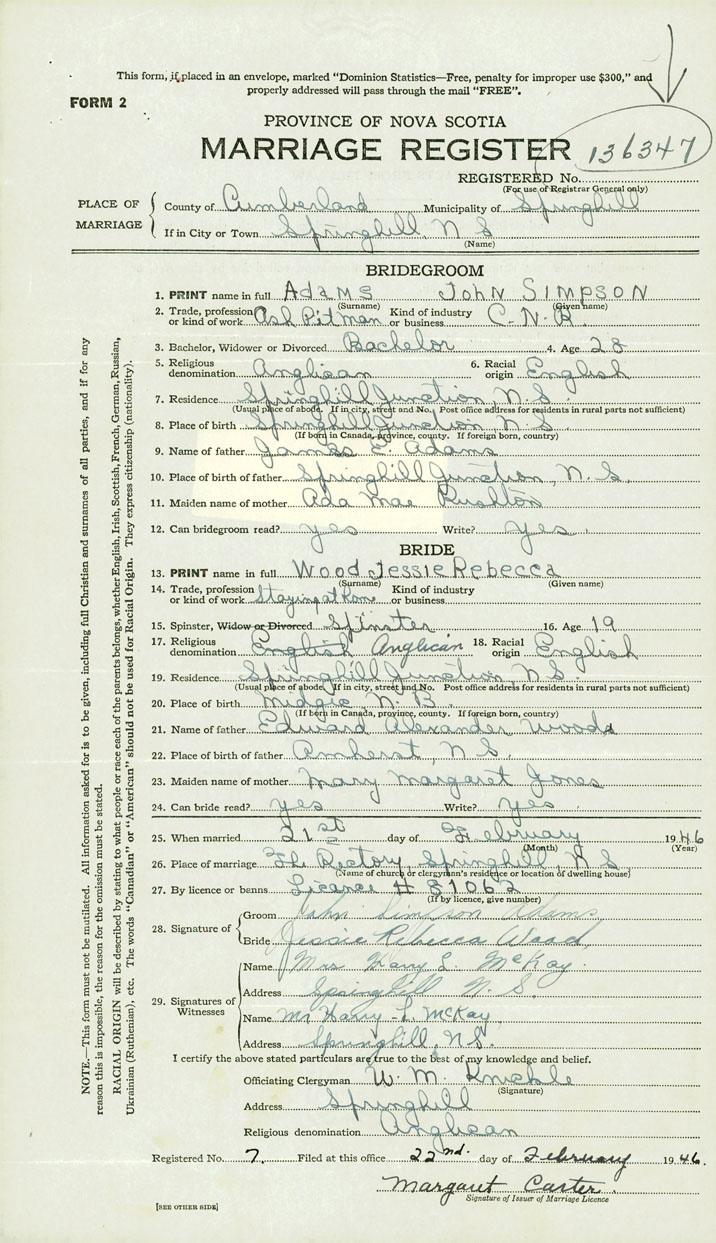 This form, if placed in an envelope, marked "Dominion Statistics—Free, penalty for improper use $300," and
properly addressed will pass through the mail "FREE".
FORM 2
PROVINCE OF NOVA SCOTIA
MARRIAGE REGISTER 136347
REGISTERED No.
(For use of Registrar General only)
PLACE OF MARRIAGE
County of Cumberland Municipality of Springhill
If in City or Town Springhill, N S
(Name)
BRIDEGROOM
1. PRINT name in full Adams John Simpson
(Surname) (Given name)
2. Trade, profession or kind of work Ash Pitman Kind of industry or business C.N.R.
3. Bachelor, Widower or Divorced Bachelor 4. Age 28
5. Religious denomination Anglican 6. Racial origin English
7. Residence Springhill Junction, N.S.
(Usual place of abode. If in city, street and No. Post office address for residents in rural parts not sufficient)
8. Place of birth Springhill Junction N.S.
(If born in Canada, province, county. If foreign born, country)
9. Name of father James E. Adams
10. Place of birth of father Springhill Junction, N.S.
11. Maiden name of mother Ada Mae Rushton
12. Can bridegroom read? yes Write? yes
BRIDE
13. PRINT name in full Wood Jessie Rebecca
(Surname) (Given name)
14. Trade, profession or kind of work Staying at Home Kind of industry or business
15. Spinster, Widow or Divorced Spinster 16. Age 19
17. Religious denomination English Anglican 18. Racial origin English
19. Residence Springhill Junction, N.S.
(Usual place of abode. If in city, street and No. Post office address for residents in rural parts not sufficient)
20. Place of birth Midgic N.B.
(If born in Canada, province, county. If foreign born, country)
21. Name of father Edward Alexander Wood
22. Place of birth of father Amherst, N.S.
23. Maiden name of mother Mary Margaret Jones
24. Can bride read? yes Write? yes
25. When married 21st day of February 1946
(Month) (Year)
26. Place of marriage The Rectory, Springhill, N S
(Name of church or clergyman's residence or location of dwelling house)
27. By licence or banns Licence # 81062
(If by licence, give number)
28. Signature of
Groom John Simpson Adams
Bride Jessie Rebecca Wood
29. Signatures of Witnesses
Name Mrs Harry L. McKay
Address Springhill N.S.
Name Mr Harry L. McKay
Address Springhill, N.S.
I certify the above stated particulars are true to the best of my knowledge and belief.
Officiating Clergyman W. M. Knickle
(Signature)
Address Springhill
Religious denomination Anglican
Registered No. 7. Filed at this office 22nd. day of February 1946.
Margaret Carter.
Signature of Issuer of Marriage Licence
[SEE OTHER SIDE]
NOTE.—This form must not be mutilated. All information asked for is to be given, including full Christian and surnames of all parties, and if for any
reason this is impossible, the reason for the omission must be stated.
RACIAL ORIGIN will be described by stating to what people or race each of the parents belongs, whether English, Irish, Scottish, French, German, Russian,
Ukrainian (Ruthenian), etc. The words "Canadian" or "American" should not be used for Racial Origin. They express citizenship (nationality).